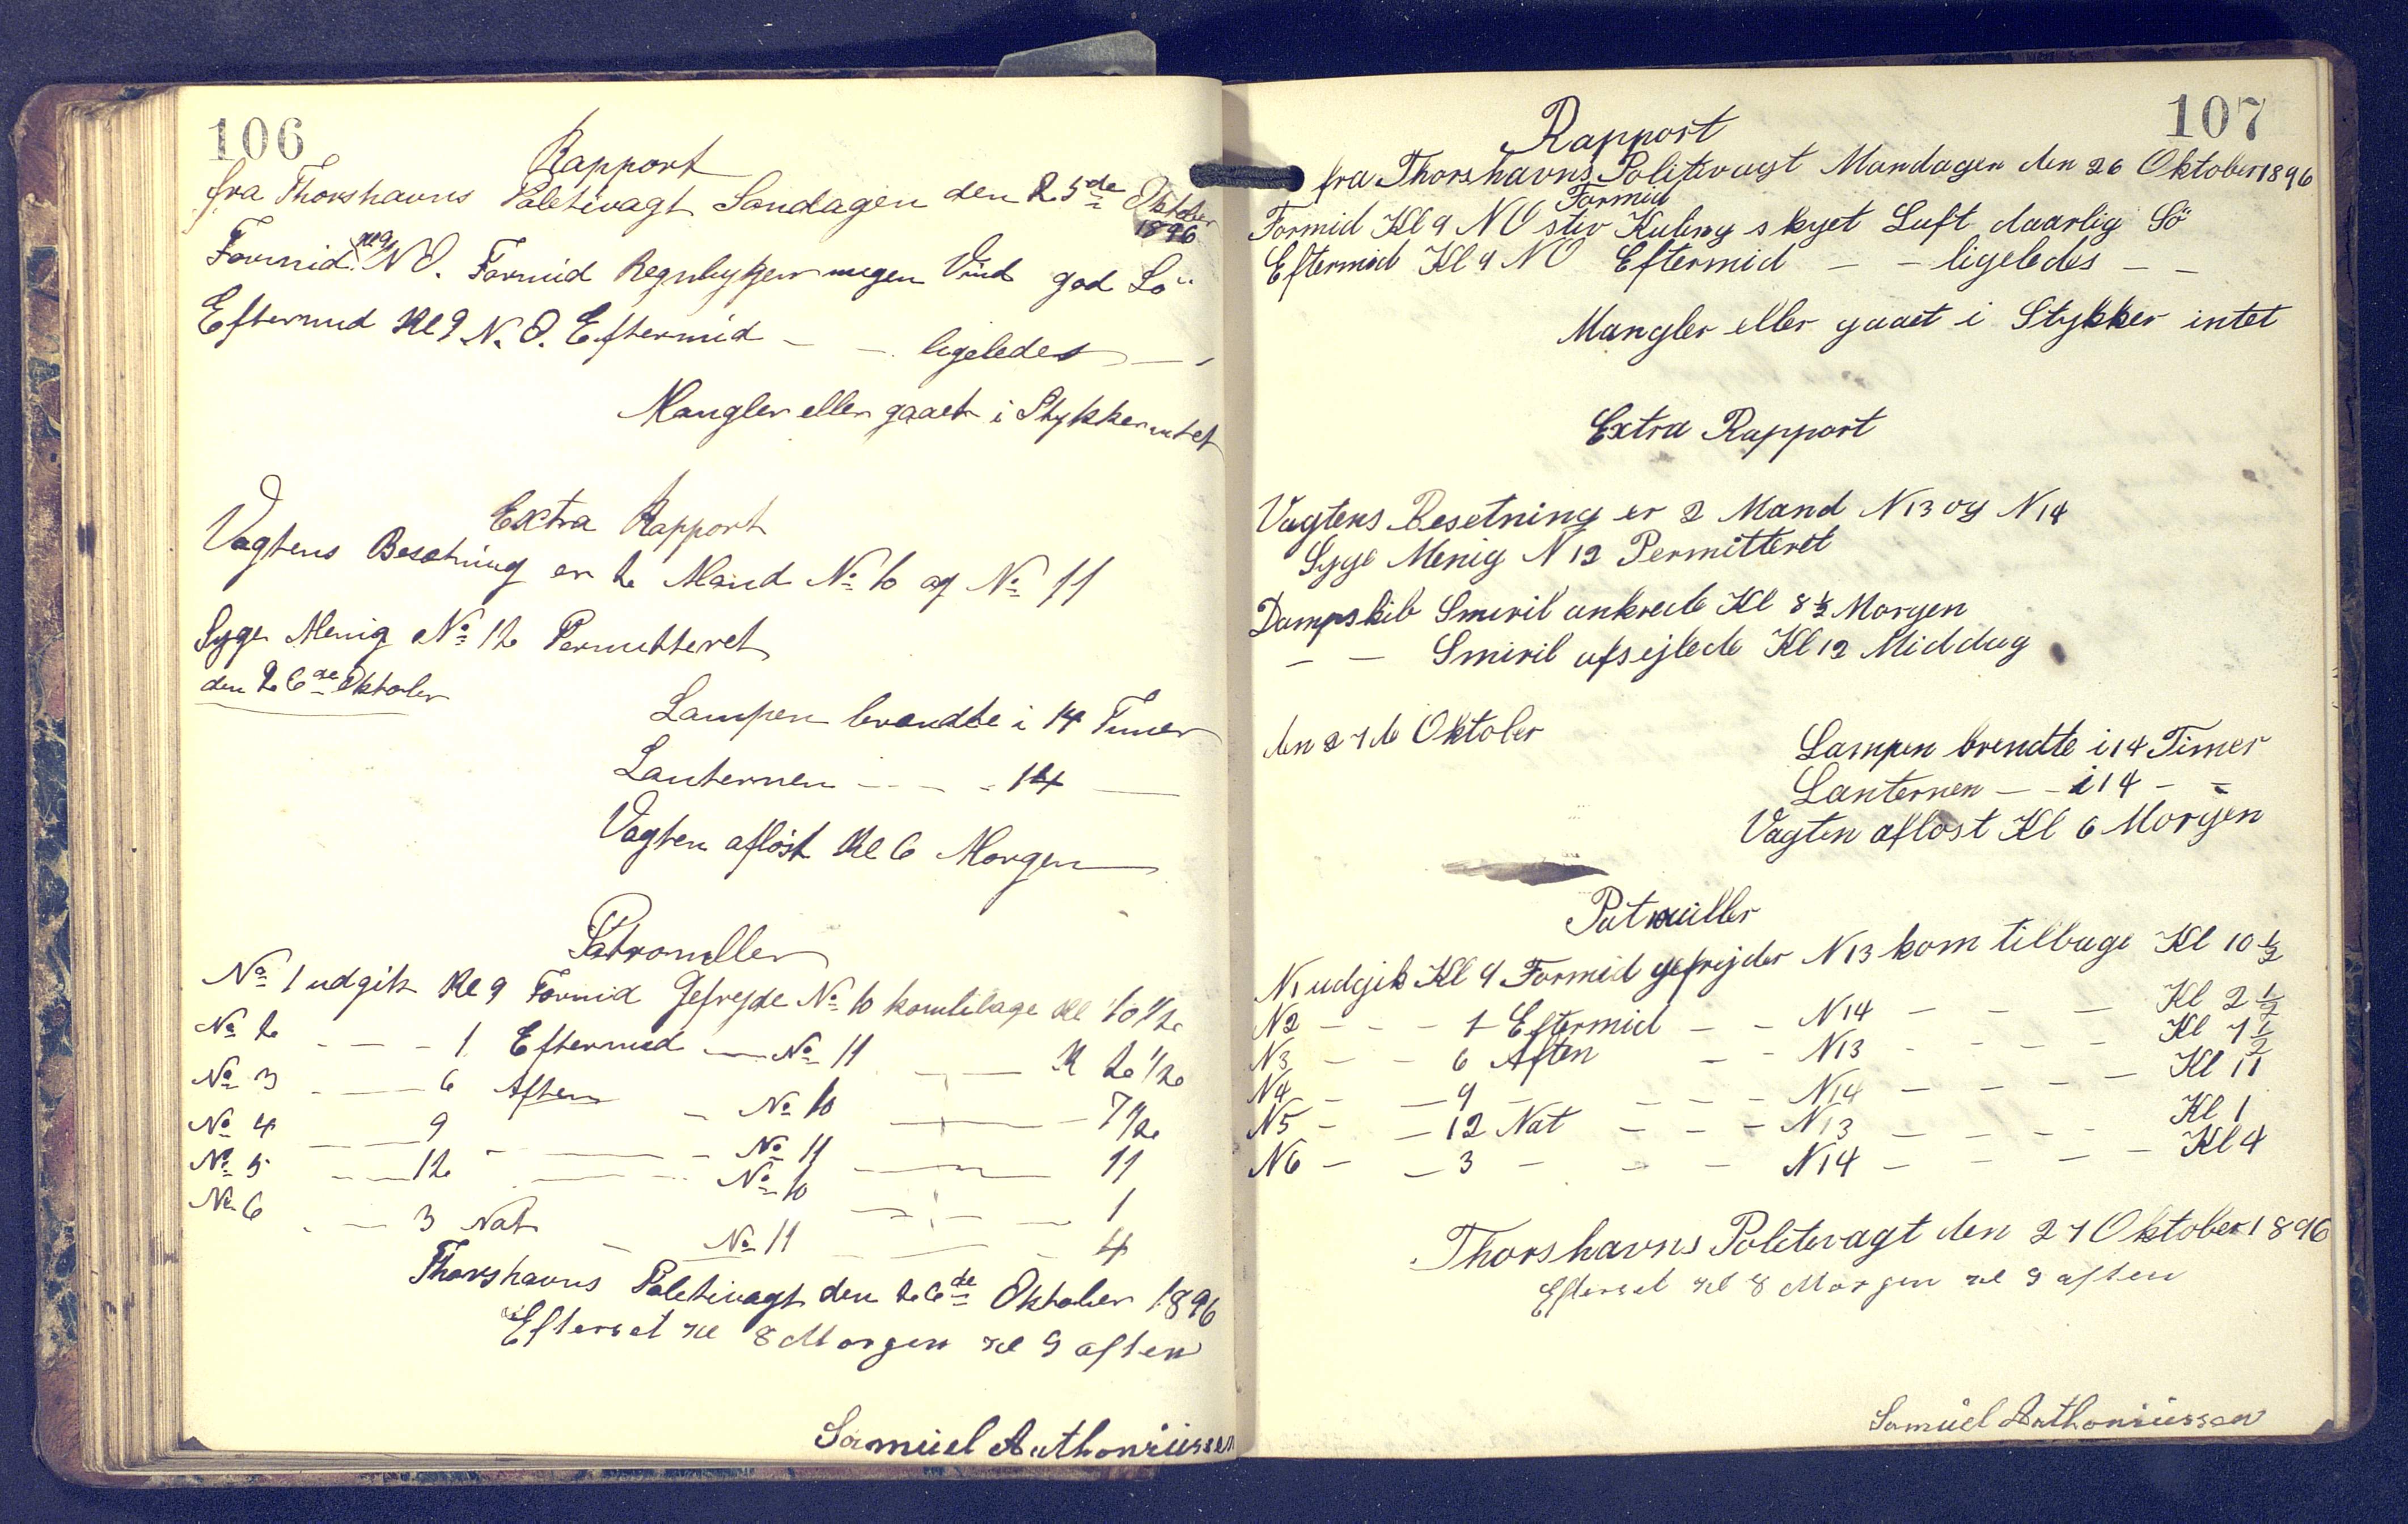 106
Rapport
fra Thorshavns Poletivagt Sondagen den 25de Oktober
1896
Formid. Kl 9 N O. Formid Regnbyger megen Vind god Sö
Eftermid Kl 9 N. O. Eftermid - - ligeledes - -
Mangler eller gaaet i Stykker intet
Extra Rapport
Vagtens Besetning er 2 Mand No 10 og No 11
Syge Menig No 12 Permitteret
den 26de Oktober
Lampen brendte i 14 Timer
Lanternen - - - - 14 -
Vagten aflöst Kl 6 Morgen
Patrouller
No 1 udgik Kl 9 Formid Gefrejde No 10 komtilbage Kl 10 1/2
No 2 - - - 1 Eftermid - No 11 - - K 2 1/2
No 3 - - 6 Aften - No 10 - - 7 1/2
No 4 - - 9 - - - No 11 - - 11
No 5 - - 12 - - No 10 - - - 1
No 6 - - 3 Nat - No 11 - - - 4
Thorshavns Poletivagt den 26de Oktober 1896
Efterset Kl 8 Morgen Kl 9 aften
Samüel Anthoniüssen
107
Rapport
fra Thorshavns Politivagt Mandagen den 26 Oktober 1896
Formid
Formid Kl 9 NO stiv Kuling skyet Luft daarlig Sö
Eftermid Kl 9 NO Eftermid - - ligeledes - -
Mangler eller gaaet i Stykker intet
Extra Rapport
Vagtens Besetning er 2 Mand N13 og N14
Syge Menig N 12 Permitteret
Dampskib Smiril ankrede Kl 8 1/2 Morgen
- - Smiril afsejlede Kl 12 Middag
den 27de Oktober
Lampen brendte i 14 Timer
Lanternen - - i 14 - -
Vagten aflöst Kl 6 Morgen
Patruiller
N1 udgik Kl 9 Formid gefrejder N13 kom tilbage Kl 10 1/2
N2 - - - 1 Eftermid - - N14 - - - Kl 2 1/2
N3 - - 6 Aften - - N13 - - - - Kl 7 1/2
N4 - - 9 - - - - N14 - - - - Kl 11
N5 - - 12 Nat - - - N13 - - - - Kl 1
N6 - - 3 - - - N14 - - - - Kl 4
Thorshavns Politivagt den 27 Oktober 1896
Efterset Kl 8 Morgen Kl 9 aften
Samüel Anthoniüssen